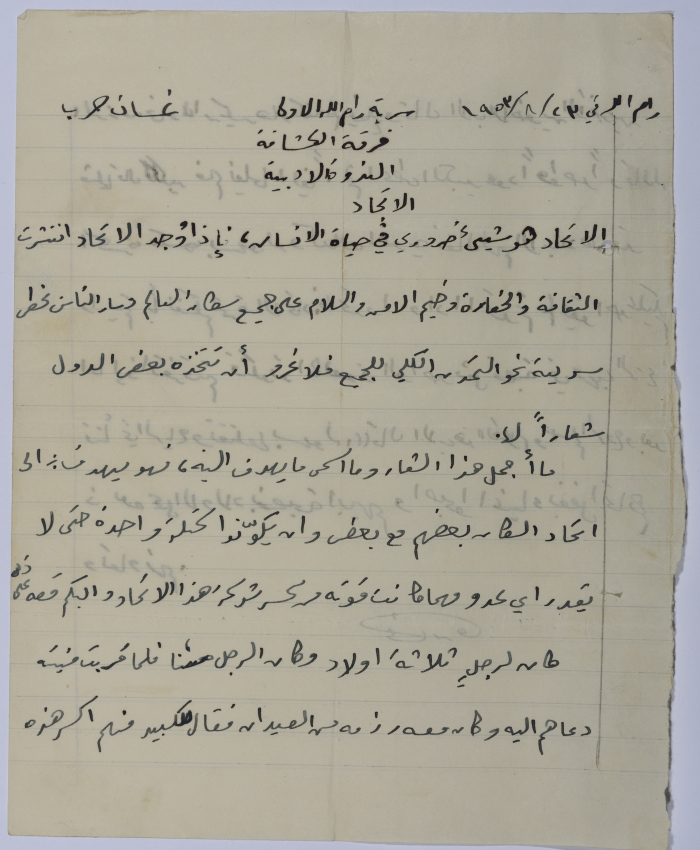 رام الله في ٢٣/٨/١٩٥٣ سرية رام الله الاولى غسان حرب
فرقة الكشافة
الندوة الادبية
الاتحاد
إلاتحاد هو شيئ ضروري في حياة الانسان، فإذا وُجد الاتحاد انتشرت
الثقافة والحضارة وخيم الامن والسلام على جميع سكان العالم وسار الناس بخطى
سريعة نحو التمدن الكلي للجميع فلا غرو أن تتخذه بعض الدول
شعاراً لها.
ما أجمل هذا الشعار وما اسمى ما يهدف اليه، فهو يهدف الى
اتحاد السكان بعضهم مع بعض وان يكوّنوا كتلة واحدة حتى لا
يقدر اي عدو مهما كانت قوته من كسر شوكة هذا الاتحاد واليكم قصة على ذلك
كان لرجلٍ ثلاثة اولاد وكان الرجل مسنا فلما قربت منيته
دعاهم اليه وكان معه رزمه من العيدان فقال للكبير منهم اكسر هذه